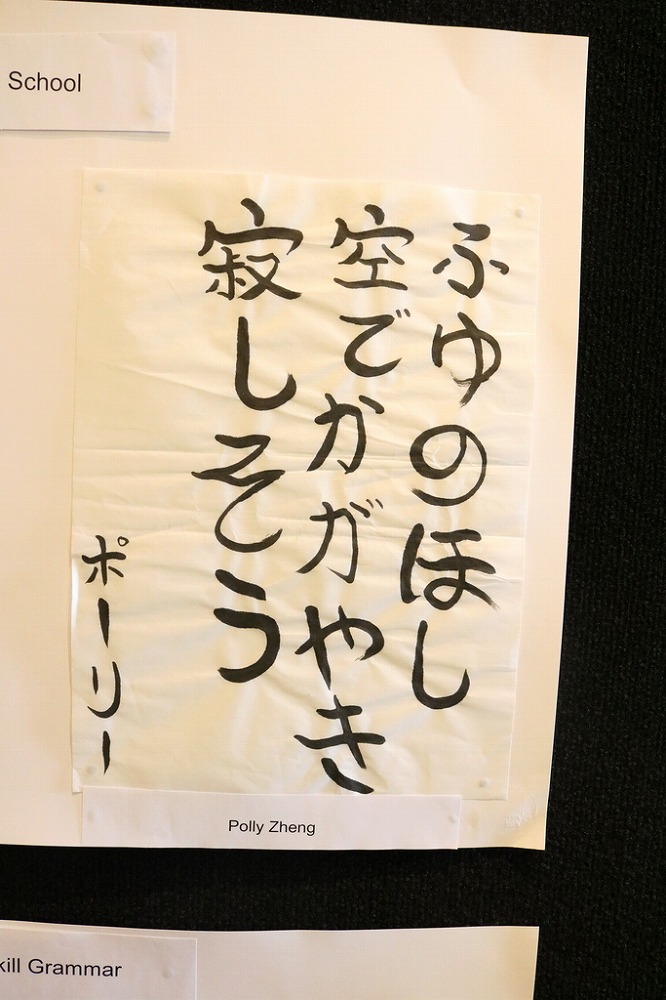 School
ふゆのほし
空でかガやき
寂しそう
ポーリー
Polly Zheng
kill Grammar